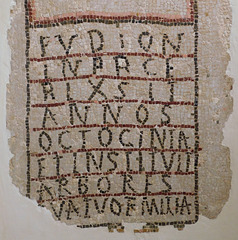 FVDION
IN PACE
BIXSIT
ANNOS
OCTOGINTA
ET INSTITVIT
ARBORES
QVATVOR MILIA